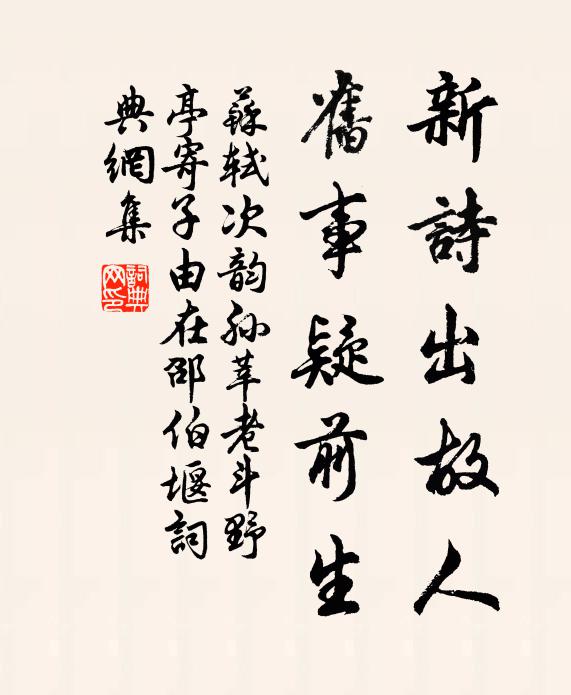 新詩出故人
舊事疑前生
蘇軾次韵孙莘老斗野
亭寄子由在邵伯堰詞
典網集
詞典
网印